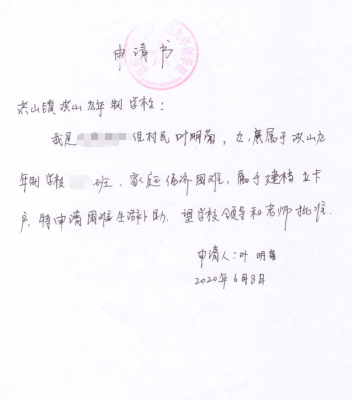 申请书
洪山镇洪山九年制学校：
我是 组村民叶明菊，女，属于洪山九
年制学校 班，家庭经济困难，属于建档立卡
户，特申请困难生活补助，望学校领导和老师批准．
申请人：叶明菊
2020年6月8日